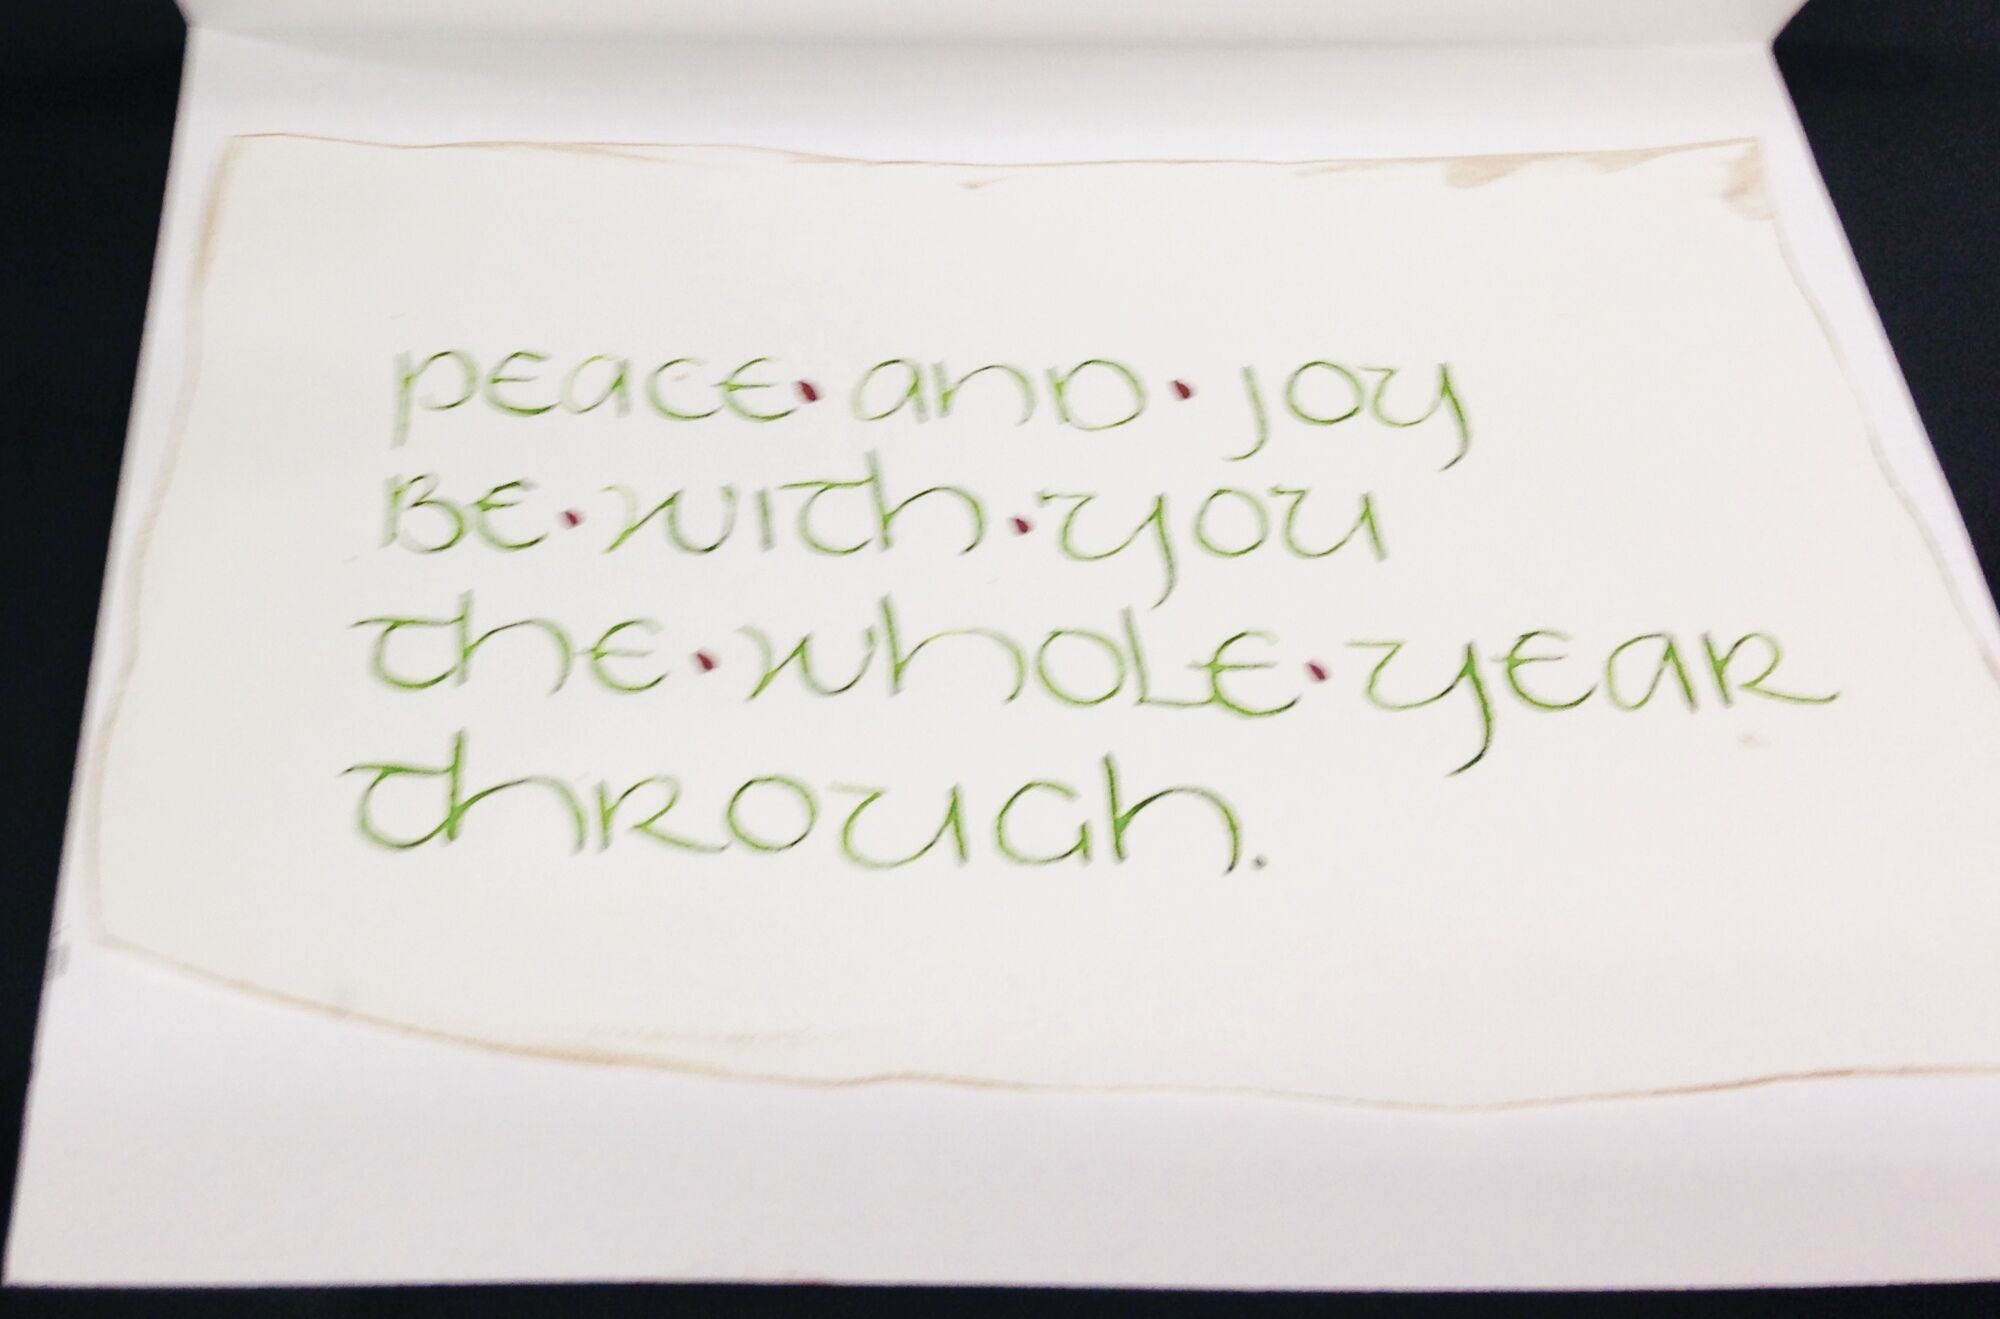 peace·and·joy
be·with·you
the·whole·year
through.